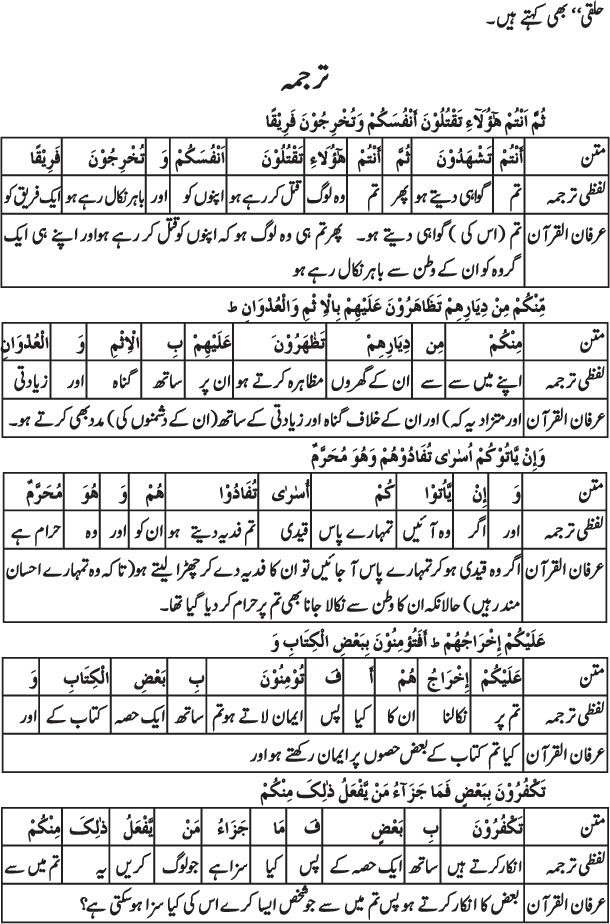 حلقی‘‘ بھی کہتے ہیں۔
ترجمہ
ثُمَّ اَنْتُمْ هٰٓؤُلَاءِ تَقْتُلُوْنَ أَنْفُسَكُمْ وَتُخْرِجُوْنَ فَرِيْقًا
متن أَنْتُمْ تَشْهَدُوْنَ ثُمَّ أَنْتُمْ هٰٓؤُلَاءِ تَقْتُلُوْنَ اَنْفُسَكُمْ وَ تُخْرِجُوْنَ فَرِيْقًا
لفظی ترجمہ تم گواہی دیتے ہو پھر تم وہ لوگ قتل کر رہے ہو اپنوں کو اور باہر نکال رہے ہو ایک فریق کو
عرفان القرآن تم (اس کی) گواہی دیتے ہو۔ پھر تم ہی وہ لوگ ہو کہ اپنوں کو قتل کر رہے ہو اور اپنے ہی ایک
گروہ کو ان کے وطن سے باہر نکال رہے ہو
مِّنْكُمْ مِنْ دِيَارِهِمْ تَظَاهَرُوْنَ عَلَيْهِمْ بِالْاِثْمِ وَالْعُدْوَانِ ط
متن مِنْكُمْ مِن دِيَارِهِمْ تَظٰهَرُوْنَ عَلَيْهِمْ بِ الْاِثْمِ وَ الْعُدْوَانِ
لفظی ترجمہ اپنے میں سے سے ان کے گھروں مظاہرہ کرتے ہو ان پر ساتھ گناہ اور زیادتی
عرفان القرآن اور متزاد یہ کہ) اور ان کے خلاف گناہ اور زیادتی کے ساتھ (ان کے دشمنوں کی) مدد بھی کرتے ہو۔
وَاِنْ يَّاتُوْكُمْ اُسٰرٰى تُفَادُوْهُمْ وَهُوَ مُحَرَّمٌ
متن وَ اِنْ يَّاْتُوْا كُمْ اُسٰرٰى تُفَادُوْا هُمْ وَ هُوَ مُحَرَّمٌ
لفظی ترجمہ اور اگر وہ آئیں تمہارے پاس قیدی تم فدیہ دیتے ہو ان کو اور وہ حرام ہے
عرفان القرآن اگر وہ قیدی ہو کر تمہارے پاس آ جائیں تو ان کا فدیہ دے کر چھڑا لیتے ہو (تاکہ وہ تمہارے احسان
مند رہیں) حالانکہ ان کا وطن سے نکالا جانا بھی تم پر حرام کر دیا گیا تھا۔
عَلَيْكُمْ اِخْرَاجُهُمْ ط أَفَتُؤمِنُوْنَ بِبَعْضِ الْكِتَابِ وَ
متن عَلَيْكُمْ اِخْرَاجُ هُمْ أَ فَ تُوْمِنُوْنَ بِ بَعْضِ الْكِتَابِ وَ
لفظی ترجمہ تم پر نکالنا ان کا کیا پس ایمان لاتے ہو تم ساتھ ایک حصہ کتاب کے اور
عرفان القرآن کیا تم کتاب کے بعض حصوں پر ایمان رکھتے ہو اور
تَكْفُرُوْنَ بِبَعْضٍ فَمَا جَزَآءُ مَنْ يَّفْعَلُ ذٰلِكَ مِنْكُمْ
متن تَكْفُرُوْنَ بِ بَعْضٍ فَ مَا جَزَاءُ مَنْ يَّفْعَلُ ذٰلِكَ مِنْكُمْ
لفظی ترجمہ انکار کرتے ہیں ساتھ ایک حصہ کے پس کیا سزا ہے جو لوگ کریں یہ تم میں سے
عرفان القرآن بعض کا انکار کرتے ہو پس تم میں سے جو شخص ایسا کرے اس کی کیا سزا ہو سکتی ہے؟